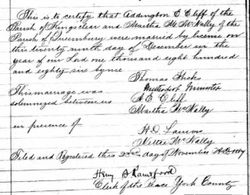 This is to certify that Addington E Cliff of the
Parish of Kingsclear and Martha H. McNally of the
Parish of Queensbury were married by license on
this twenty ninth day of December in the
year of our Lord one thousand eight hundred
and eighty six by me
Thomas
Methodist Minister
This marriage was
solemnized between us
A E Cliff
Martha McNally
in presence of
H.D.
McNally
Filed and Registered this day of November A.D. 1887
Clerk of the Peace York County